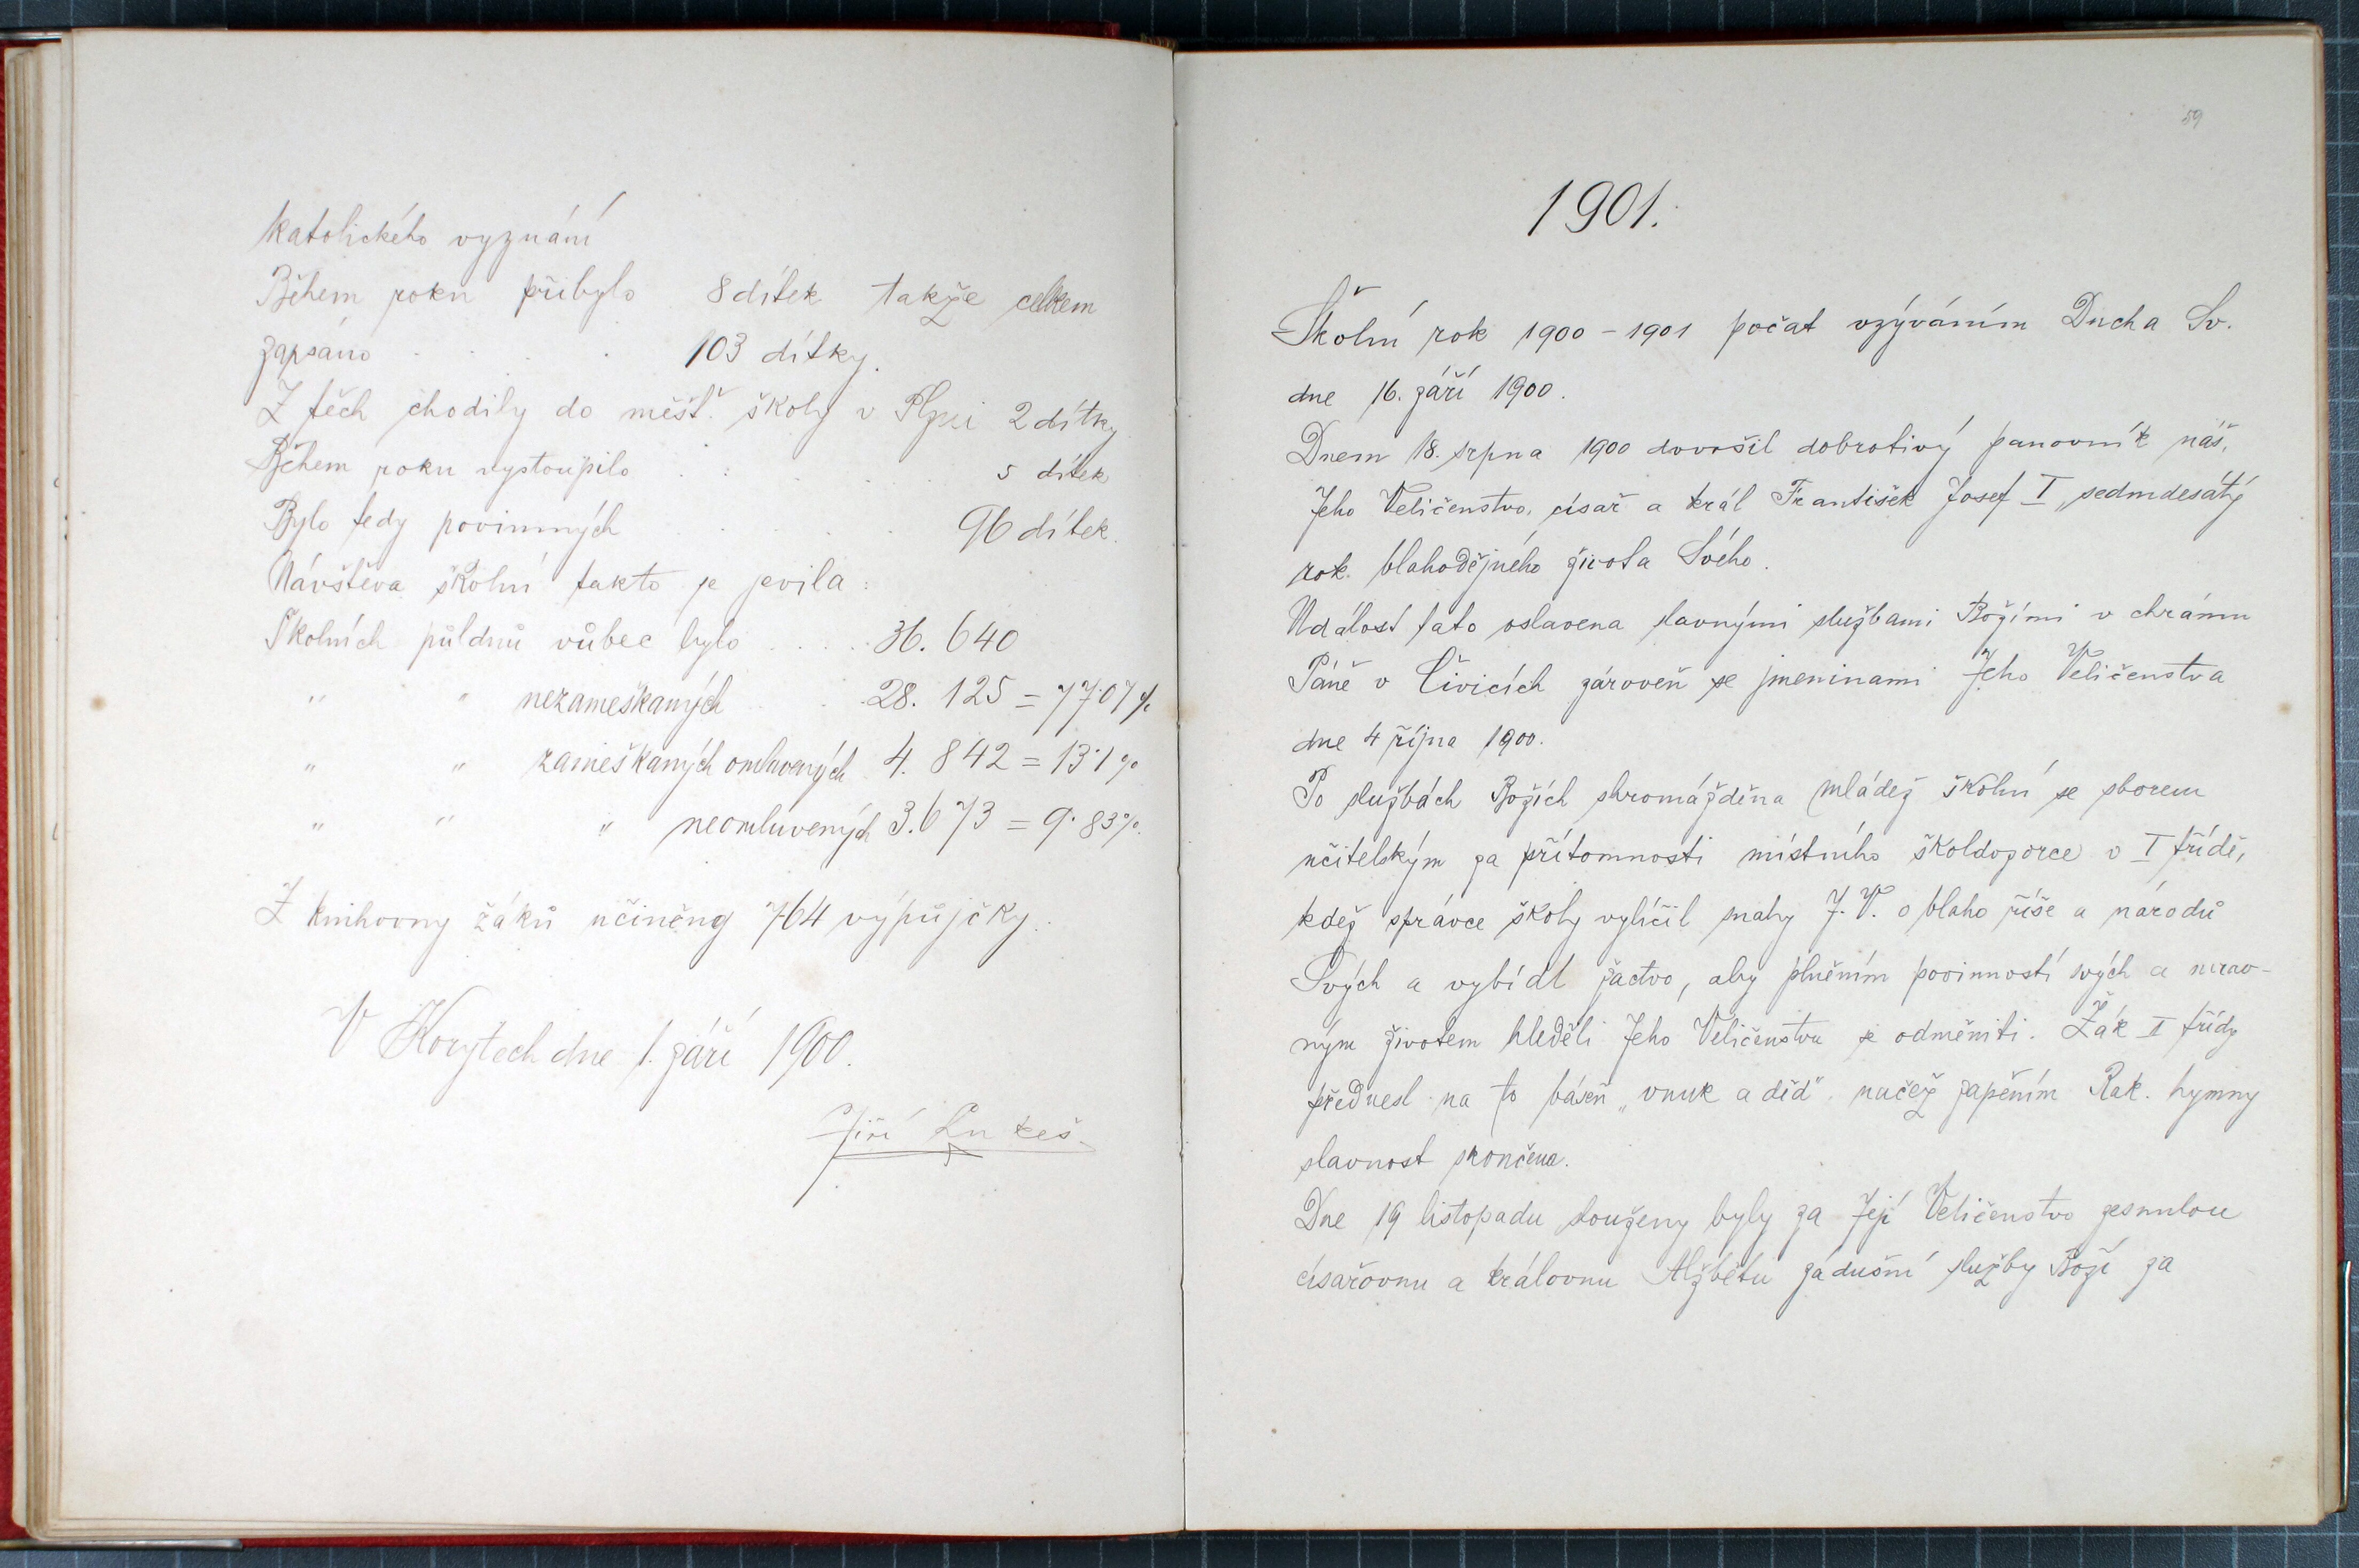 katolického vyznání
Během roku přibylo 8 dítek takže celkem
zapsáno . . . 103 dítky.
Z těch chodily do měšť. školy v Plzni 2 dítky
Během roku vystoupilo . . . . 5 dítek
Bylo tedy povinných . . . . 96 dítek.
Návštěva školní takto se jevila:
Školních půldnů vůbec bylo . . . . 36.640
" " nezameškaných . . . 28.125 = 77·07%
" " zameškaných omluvených 4.842 = 13·1%
" " " neomluvených 3.673 = 9·83%.
Z knihovny žáků učiněny 764 výpůjčky.
V Korytech dne 1. září 1900.
Jiří Lukeš
59
1901.
Školní rok 1900 – 1901 počat vzýváním Ducha Sv.
dne 16. září 1900.
Dnem 18. srpna 1900 dovršil dobrotivý panovník náš,
Jeho Veličenstvo, císař a král František Josef I, sedmdesátý
rok blahodějného života Svého.
Událost tato oslavena slavnými službami Božími v chrámu
Páně v Čivicích zároveň se jmeninami Jeho Veličenstva
dne 4 října 1900.
Po službách Božích shromážděna mládež školní se sborem
učitelským za přítomnosti místního školdozorce v I třídě,
kdež správce školy vylíčil snahy J. V. o blaho říše a národů
Svých a vybídl žactvo, aby plněním povinností svých a mrav-
ným životem hleděli Jeho Veličenstvu se odměniti. Žák I třídy
přednesl na to báseň „vnuk a děd", načež zapěním Rak. hymny
slavnost skončena.
Dne 19 listopadu slouženy byly za Její Veličenstvo zesnulou
císařovnu a královnu Alžbětu zádušní služby Boží za